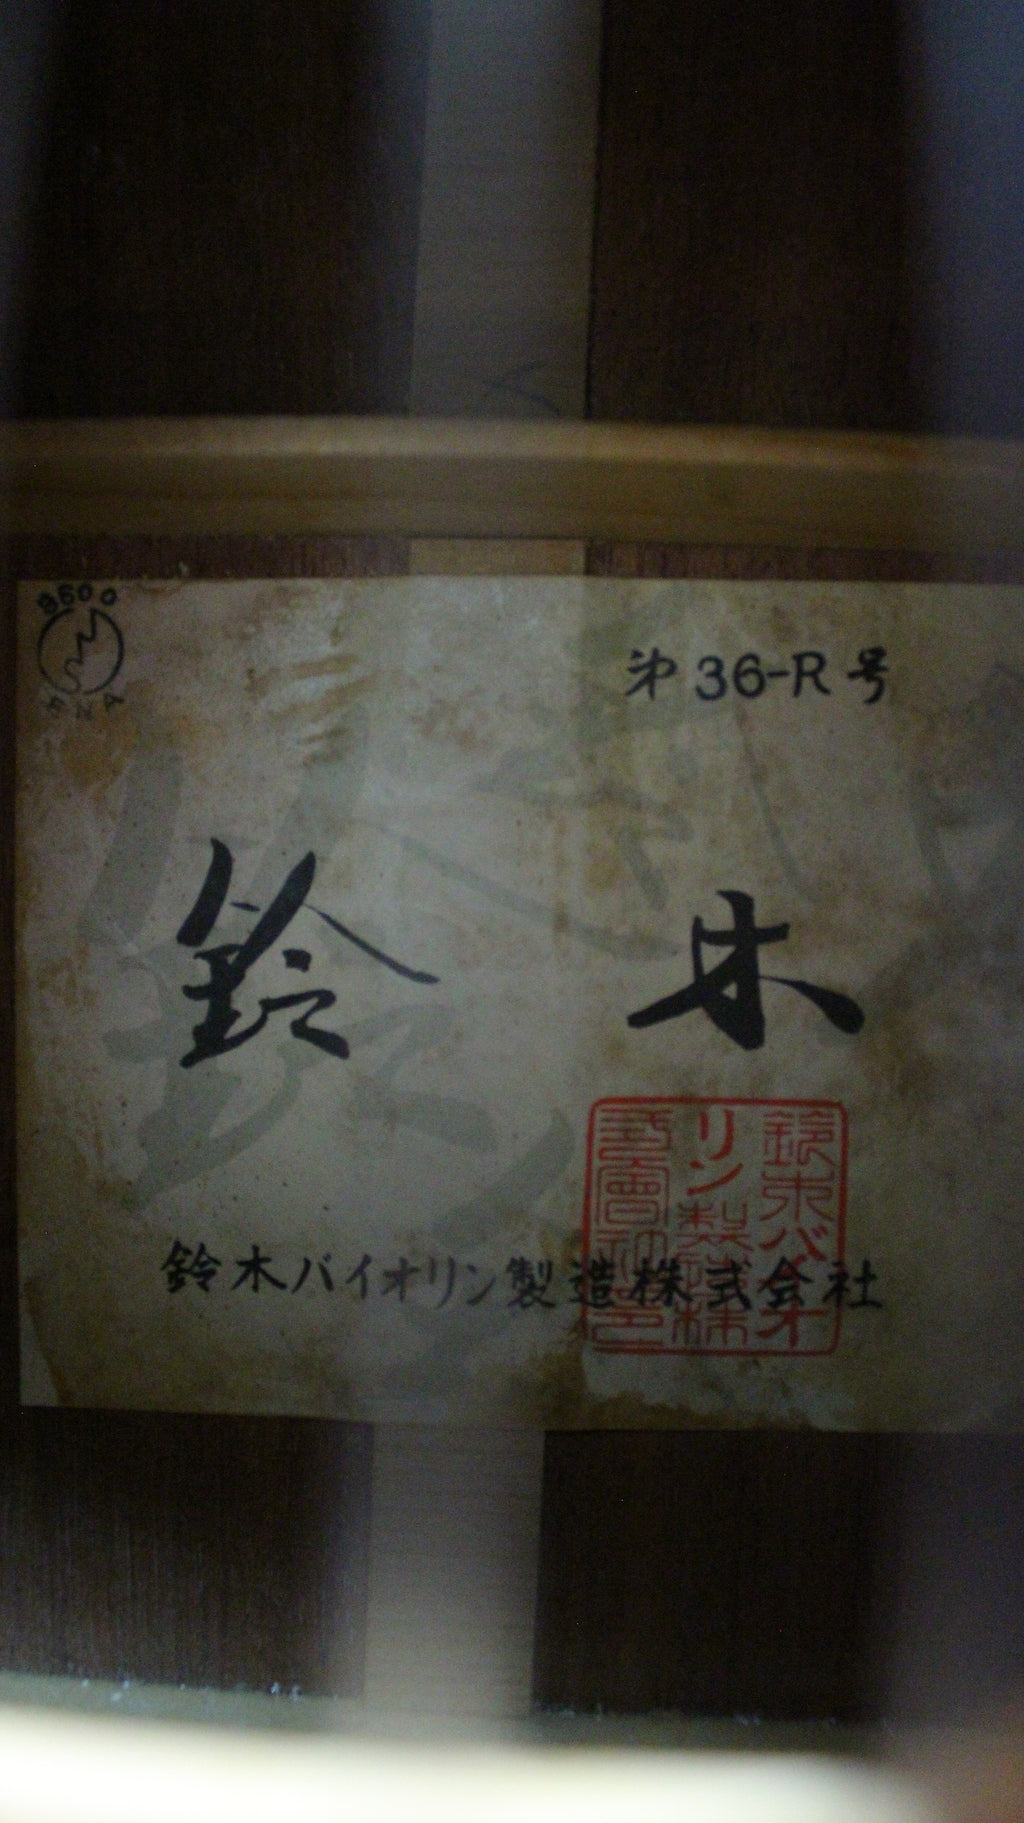 9500
第36-R号
鈴木
鈴木バイオリン製造株式会社
鈴木バイオ
リン製造株
式會社之印